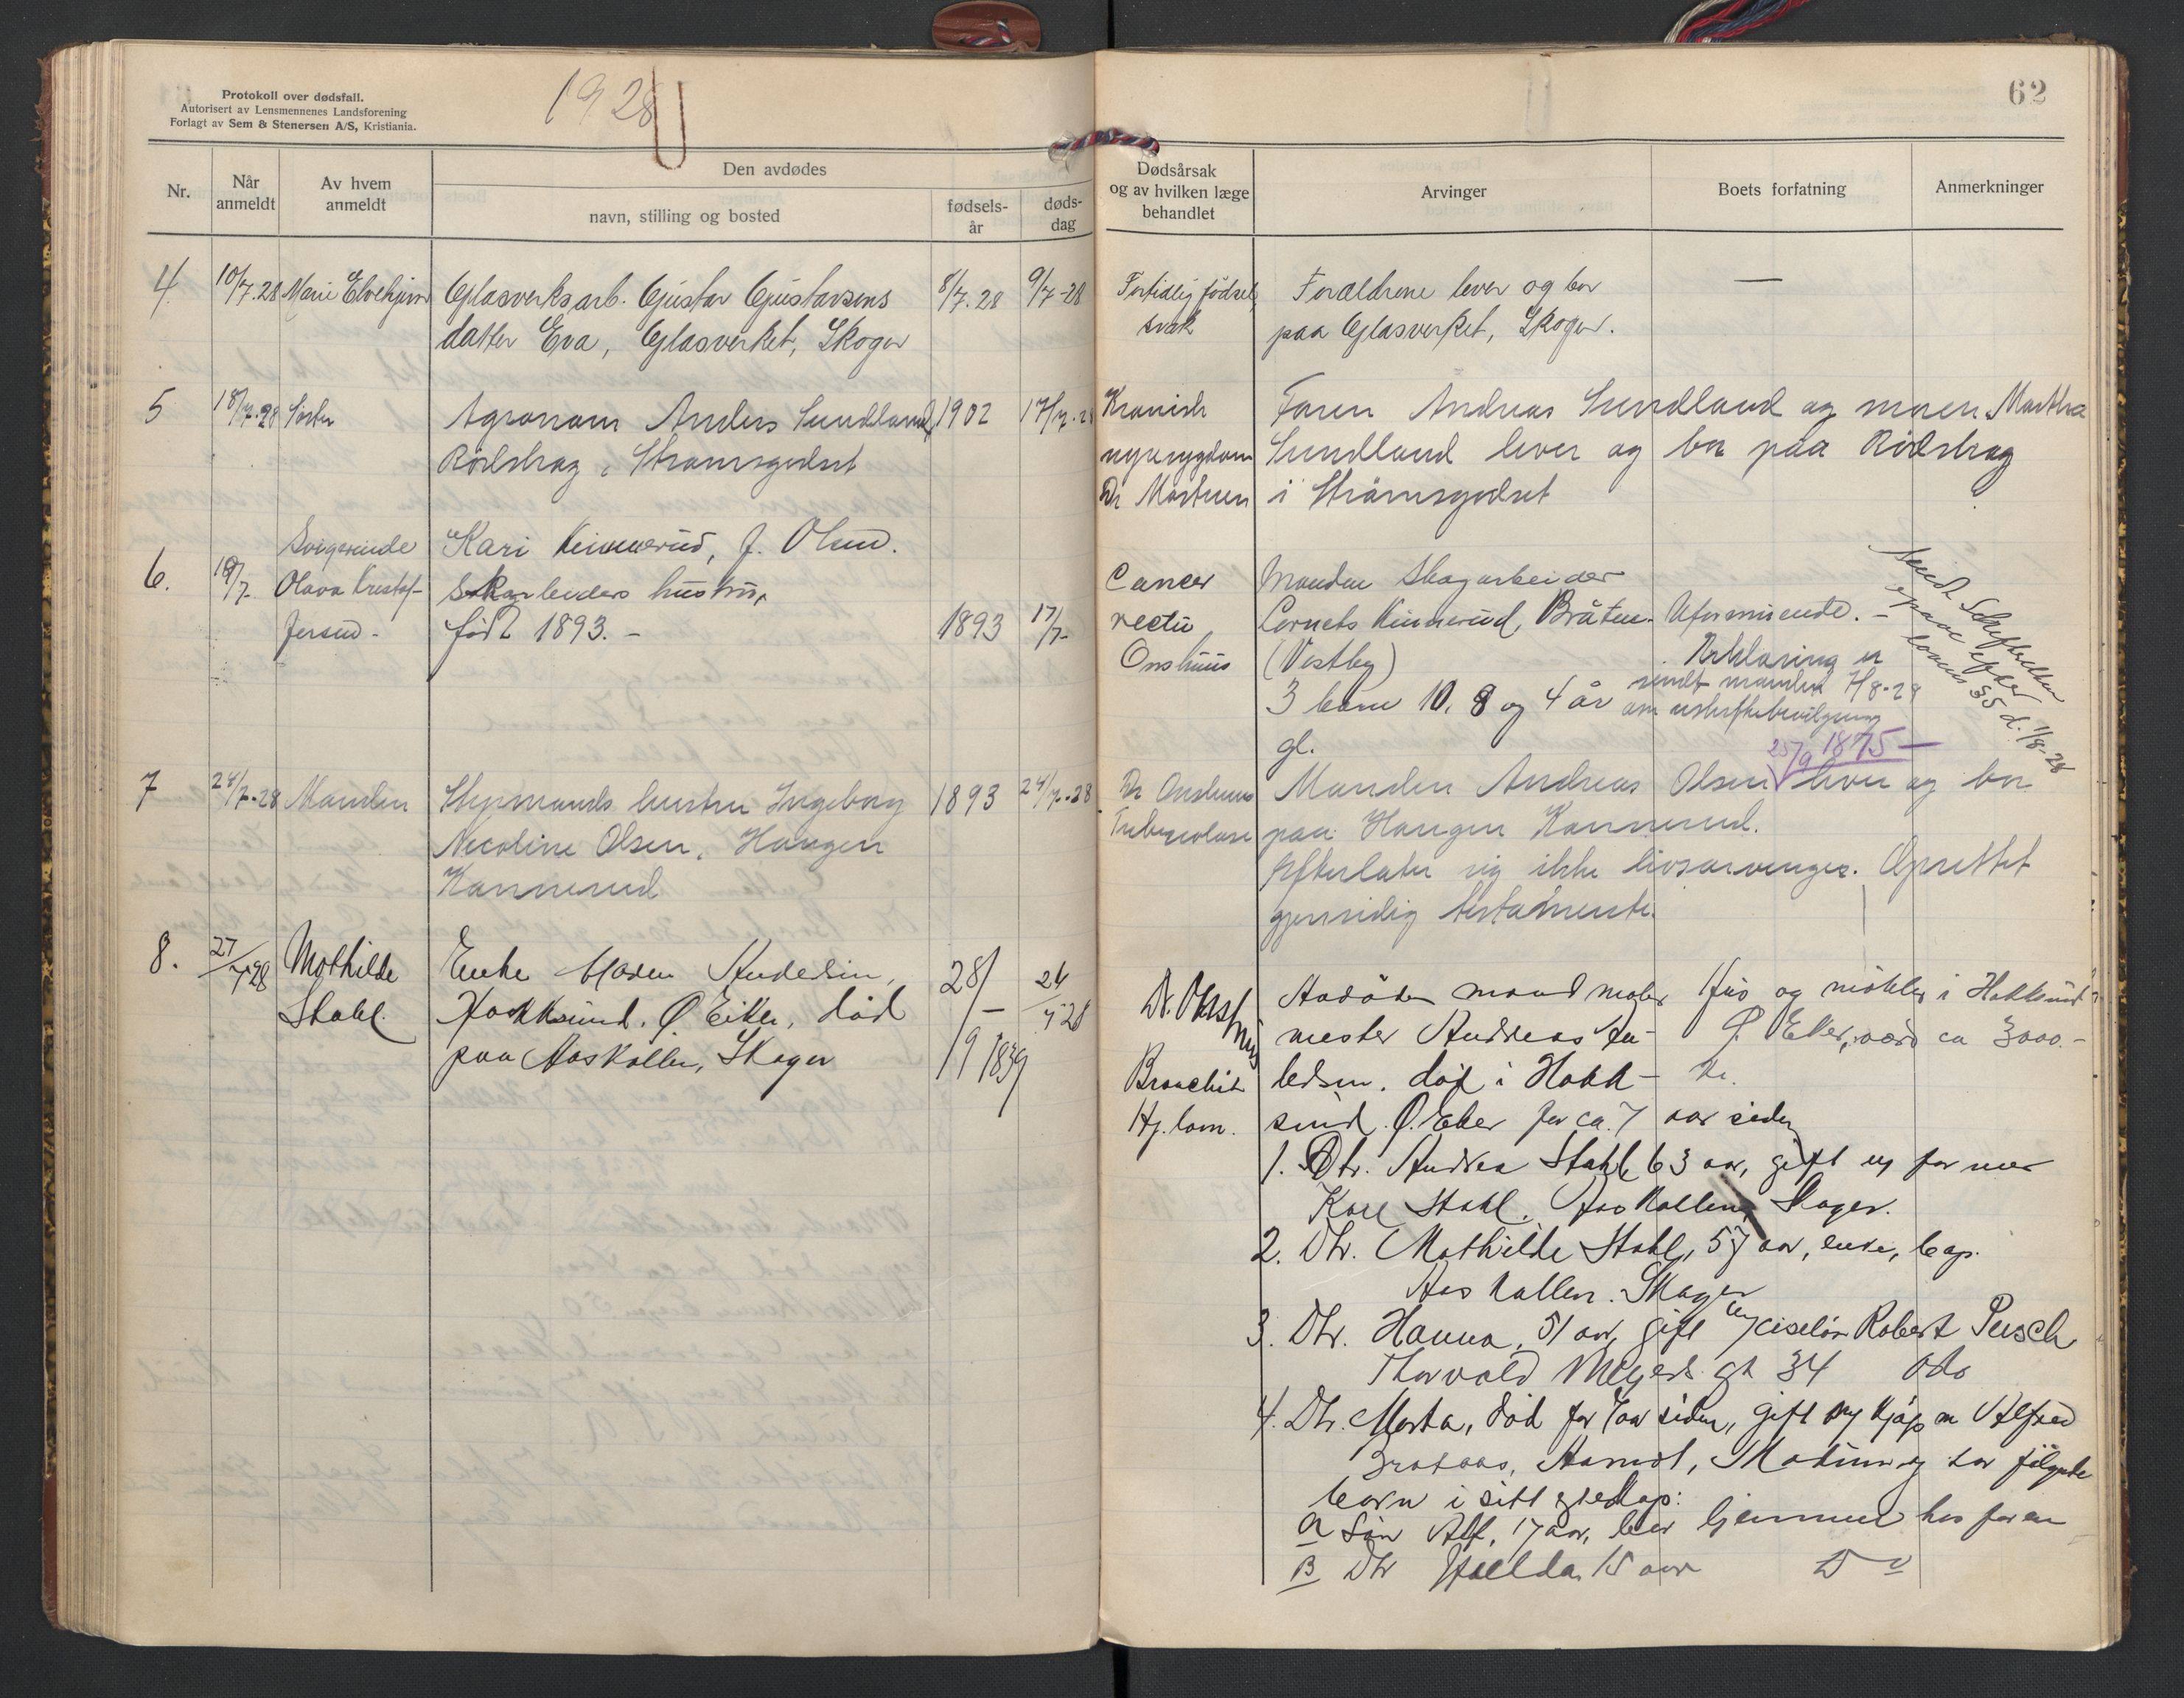 Protokoll over dødsfall.
Autorisert av Lensmennenes Landsforening
Forlagt av Sem & Stenersen A/S, Kristiania.
1928
62
Nr.
Når anmeldt
Av hvem anmeldt
Den avdødes
navn, stilling og bosted
fødsels-år
døds-dag
Dødsårsak og av hvilken læge behandlet
Arvinger
Boets forfatning
Anmerkninger
4 10/7.28 Marie Glasverksarb. Gustav Gustavsens 8/7.28 9/7-28
datter Eva, Glasverket, Skoger
Fortidlig födsel, svak
Forældrene lever og bor —
paa Glasverket, Skoger.
5 18/7.28 Søster Agronom Anders Sundland, 1902 17/7.28
Strømsgodset
Kronisk nyresygdom
Dr
Faren Andreas Sundland og moren Martha
Sundland lever og bor paa
i Strømsgodset
6. 18/7- Svigerinde
Olava
Kari f. Olsen.
hustru,
født 1893. - 1893 17/7-
Cancer
recti
Onshuus
Manden skogarbeider
Bråten.
(Vestby)
3 barn 10, 8 og 4 år
gl.
Uformuende. -
Erklæring er
sendt manden 7/8-28
om uskiftebevilgning
25/9 1875 —
Sendt Skifteretten
opgave efter
lovens § 5 d. 1/8-28
7 24/7-28 Manden Styrmands hustru Ingeborg 1893 24/7-28
Nicoline Olsen, Haugen
Konnerud
Dr Onshuus
Tuberculose
Manden Andreas Olsen lever og bor
paa Haugen Konnerud.
Efterlater sig ikke livsarvinger. Oprettet
gjensidig testamente.
8. 27/7 28 Mathilde
Stahl.
Enke Maren Andersen, 28/ 26/7 28
Hokksund. Ø. Eiker, död
paa Aaskollen, Skoger 9 1839
Dr. Onshuus
Bronchit
Hj. lam.
Avdödes mand maler
mester Andreas
död i Hokk-
sund. Ø. Eker for ca. 7 aar siden
Hus og möbler i Hokksund
Ø. Eker, værd ca 3000.-
kr.
1. Dtr. Andrea Stahl, 63 aar, gift m/ former
Karl Stahl. Aaskollen, Skoger.
2. Dtr. Mathilde Stahl, 57 aar, enke, bop.
Aaskollen. Skoger
3. Dtr. Hanna, 51 aar, gift m/ ciselör Robert Pusch
Thorvald Meyers gt 34 Oslo
4. Dtr. Marta, död for 7 aar siden, gift m/ kjøpm Alfred
Modum og har følgende
barn i sitt egteskap:
A Sön Alf, 17 aar, bor hjemme hos faren
B Dtr Hilda 15 aar Do